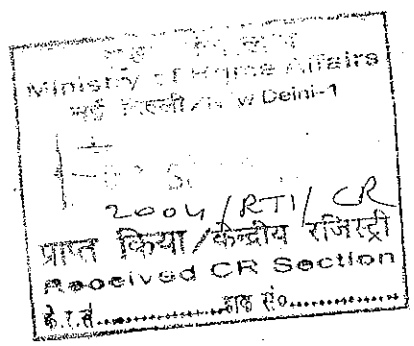 Ministry of Home Affairs
नई दिल्ली / New Delhi-1
2004/RTI/CR
प्राप्त किया/केन्द्रीय रजिस्ट्री
Received CR Section
के.र.सं...............डाक सं०...............